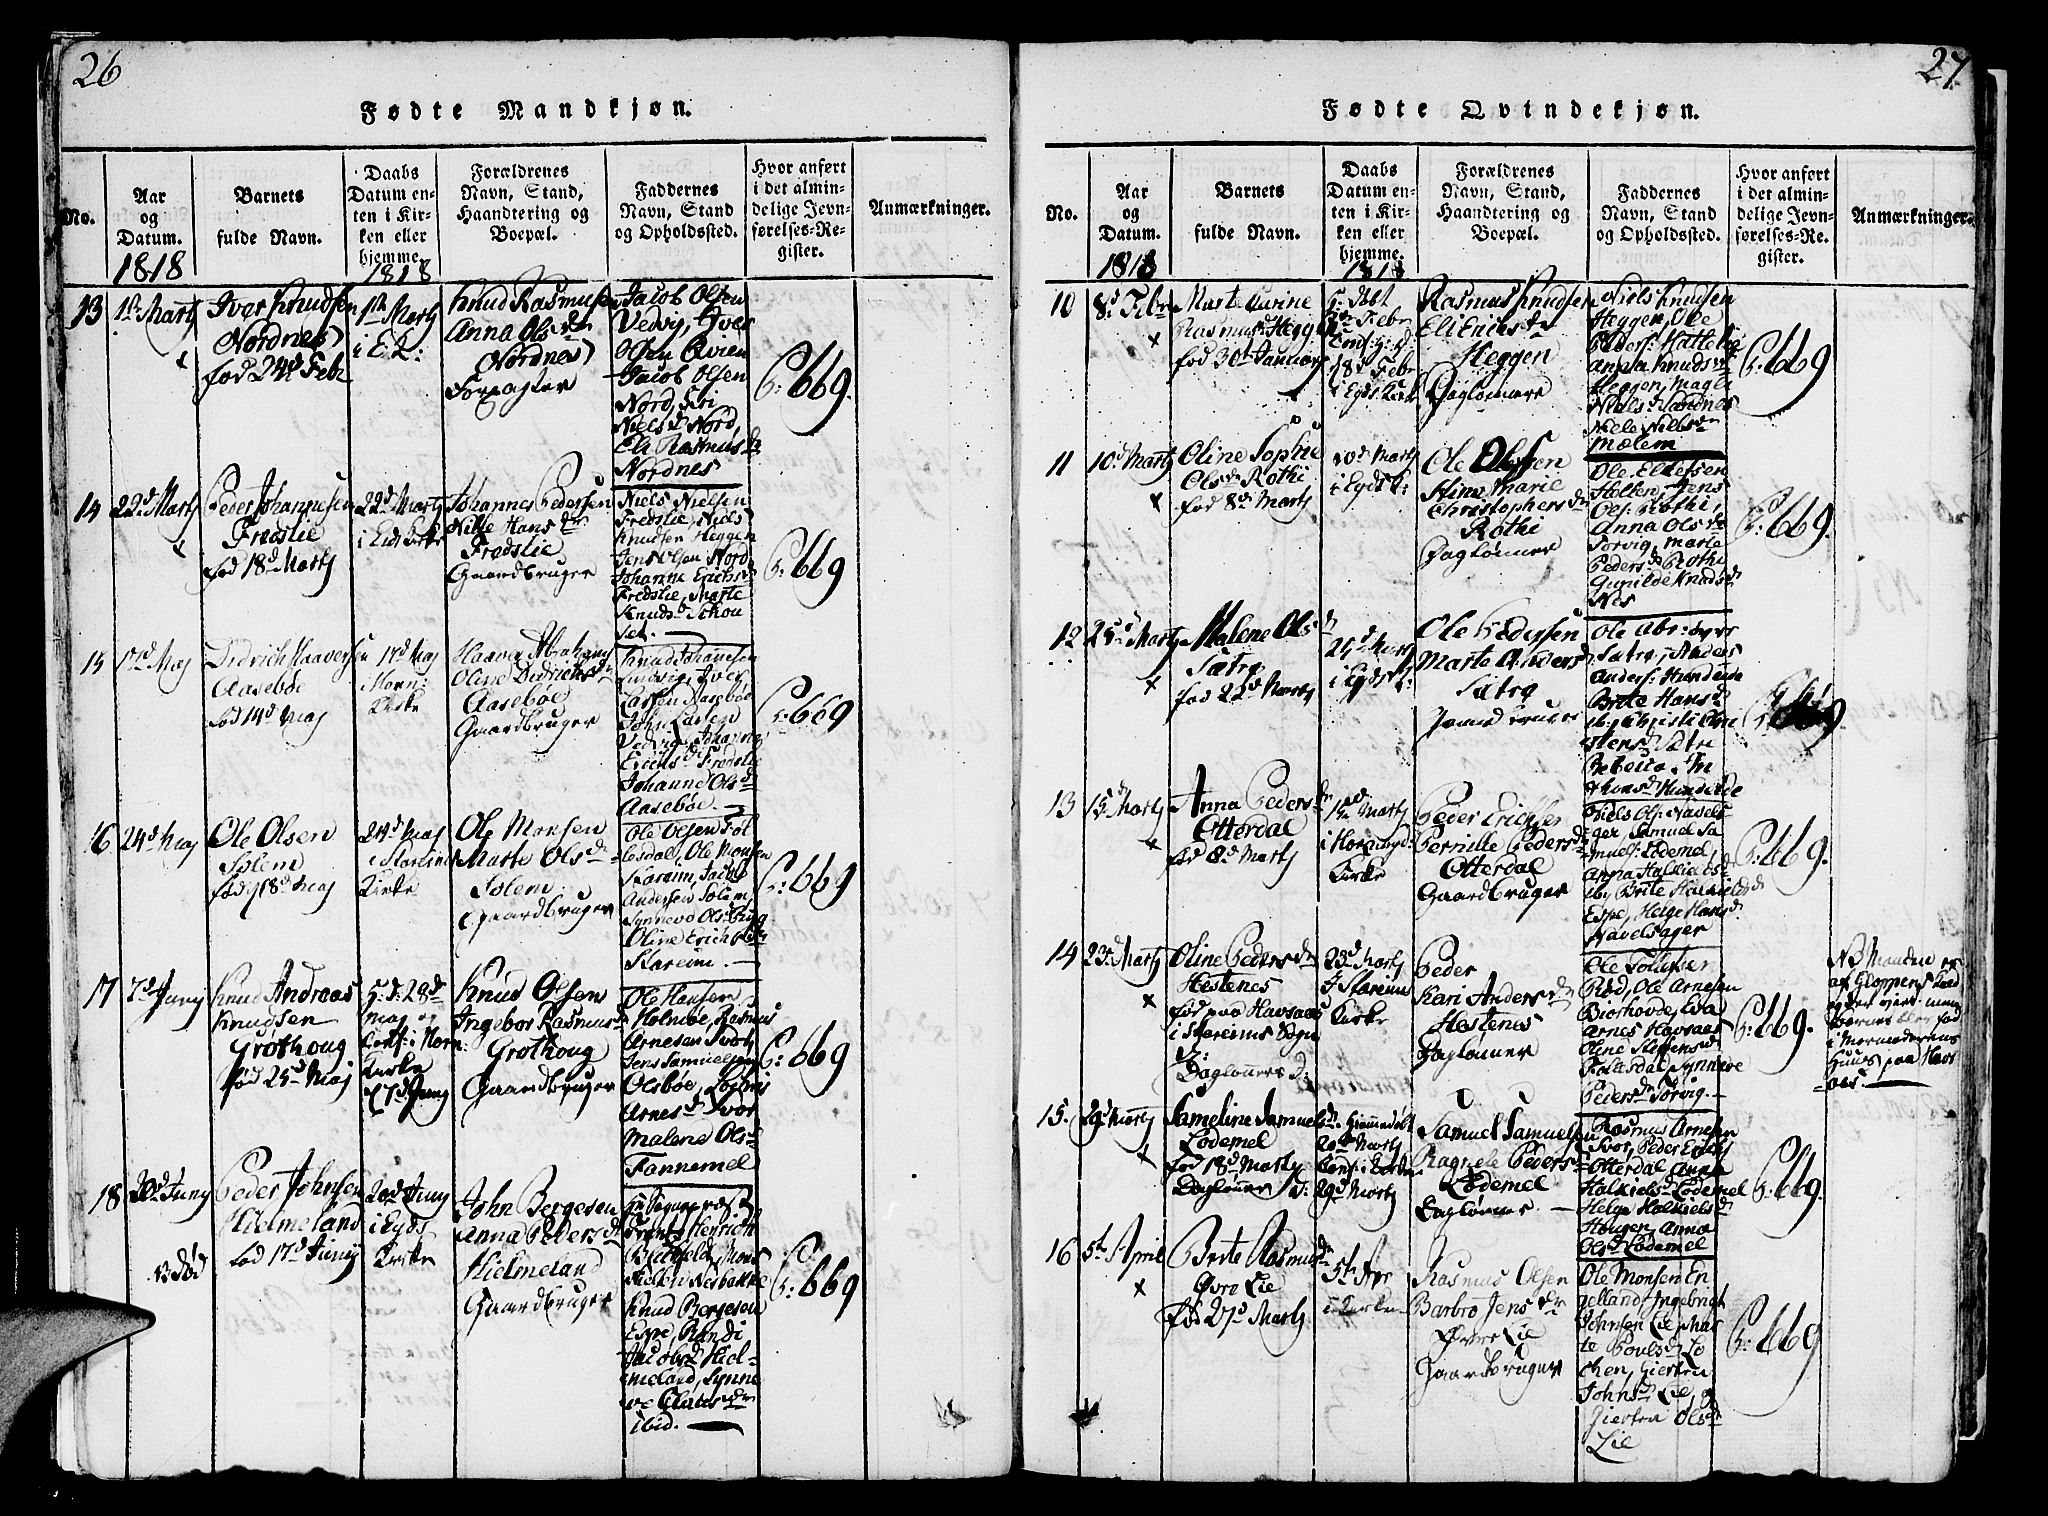 26
Fødte Mandkjøn.
No.
Aar
og
Datum.
1818
Barnets
fulde Navn.
Daabs
Datum en-
ten i Kir-
ken eller
hjemme.
1818
Forældrenes
Navn, Stand,
Haandtering og
Boepæl.
Faddernes
Navn, Stand
og Opholdssted.
Hvor anført
i det almin-
delige Jevn-
førelses-Re-
gister.
Anmærkninger.
13
1st Martj
Iver Knudsen
Nordnes
fød 24d Febr
1st Martj
i E K:
Knud Rasmusen
Anna Olsdr
Nordnes
Jacob Olsen
Vedvig, Iver
Olsen Qvien
Jacob Olsen
Nord,
Nielsd Nord,
Eli Rasmusd
Nordnes
C: 669.
14
22d Martj
Peder Johannesen
Frøslie
fød 18d Martj
22d Martj
i Eids Kirke
Johannes Pedersen
Nille Hansdr
Frøslie
Gaardbruger
Niels Nielsen
Frøslie, Niels
Knudsen Heggen
Jens Olsen Nord
Johanne Erichsd
Frøslie, Marte
Knudsd Schou
set.
C: 669
15
17d Maj
Didrich Haaversen
Aasebøe
fød 14d Maj
17d Maj
i Horn:
Kirke
Oline Didrichsd
Aasebøe
Gaardbruger
Knud Johannesen
Lundvig, Iver
Larsen Aasebøe
John Larsen
Vedvig, Johanne
Erichsd Frøslie
Johanne Olsd
Aasebøe.
C: 669
16
24d Maj
Ole Olsen
Solem
fød 18d Maj
24d Maj
i Starim
Kirke
Ole Monsen
Marte Olsd
Solem
Gaardbruger
Ole Olsen Føl
lesdal, Ole Monsen
Starein, Jacob
Andersen Solem
Synneve Olsd
Oline Erichsd
Stareim.
C: 669
17
7d Junj
Knud Andreas
Knudsen
Grothoug
fød 25d Maj
H: D: 28d
Maj og
Conf: i Horn:
Kirke
7d Junj
Knud Olsen
Ingebor Rasmusd
Grothoug
Gaardbruger
Ole Hansen
Holmøe, Rasmus
Arnesen Tvor
Jens Samuelsen
Olsbøe,
Arnesd Tvor
Malene Olsd
Tannemel
C: 669
18
20d Junj
Peder Johnsen
Hielmeland
fød 17d Junij
20d Junj
i Eyds
Kirke
John Bergesen
Anna Pedersd
Hielmeland
Gaardbruger
Frants Henrich
Knud Bergesen
Espe, Randi
Jacobsd Hiel-
meland, Synne
ve Clausdr
ibid.
C: 669
27
Fødte Qvindekjøn.
No.
Aar
og
Datum.
1818
Barnets
fulde Navn.
Daabs
Datum en-
ten i Kir-
ken eller
hjemme.
1818
Forældrenes
Navn, Stand,
Haandtering og
Boepæl.
Faddernes
Navn, Stand
og Opholdssted.
Hvor anført
i det almin-
delige Jevn-
førelses-Re-
gister.
Anmærkninger.
10
8d Febr
Rasmusd Heggen
fød 30t Januar
18d Febr
i Eyds Kirk
Rasmus Knudsen
Eli Enersdr
Heggen
Daglønnere
Niels Knudsen
Heggen, Ole
Peders: Hattelig
Anna Knudsdr
Heggen, Magli
Nielsd Nordnes
Niele Nielsdr
Mælem
C: 669
11
10d Martj
Oline Sophie
Olsdr Rothi
fød 8d Martj
10d Martj
i Eyds K:
Ole Olsen
Stine Marie
Christophersdr
Rothi
Daglønner
Holten, Jens
Ols: Rothi,
Anna Olsdr
Torvig, Marte
Pedersd Rothi
Gunilde Knudsdr
Nes
C: 669
12
25d Martj
Malene Olsdr
Sætre
fød 22d Martj
25d Martj
i Eyds K:
Ole Pedersen
Marte Andersdr
Sætre
Gaardbruger
Sætre, Anders
Anders: Hundeide
Brite Hansd
ibid
Sætre
Hundeide
13
15d Martj
Anna Pedersdr
Otterdal
fød 8d Martj
15d Martj
i Hornind:
Kirke
Peder Erichsen
Pernille Pedersdr
Otterdal
Gaardbruger
Niels Ols: Navels-
ager, Samuel Sa
muels: Lødemel,
Anna Halkielsd
ib, Brite Halkielsd
Espe, Helge Hansd
Navelsager
C: 669.
14
23d Martj
Oline Pedersdr
Hestenes
fød paa Havsaas
i Stareims Sogn
Daglønners D:
23d Martj
I Stareim
Kirke
Peder
Kari Andersdr
Hestenes
Daglønner
Rød, Ole Arnesen
Biørhovde, Eva
Arnesd Havsaas
Oline Steffensd
Følesdal, Synneve
Pedersdr Torvig.
C: 669.
NB Manden er
af Gloppens
i Mormoderens
Huus paa Havs
aas.
15.
29d Martj
Sameline Samuelsdr
Lødemel
fød 18d Martj
Daglønner D:
Hiemmedøbt
20de Martj
Conf: i Kirken
29d Martj
Samuel Samuelsen
Ragnele Pedersd
Lødemel
Daglønner
Rasmus Arnesen
Tvor, Peder Erichs
Otterdal, Anna
Halkielsd Lødemel
Helge Halkielsd
Hougen, Anna
Olsd Lødemel
C: 669.
16
5te April
Brite Rasmusdr
Øvre Lie
fød 27d Martj
5te Apr
i Kirken
Rasmus Olsen
Barbro Jensdr
Øvre Lie
Gaardbruger
Ole Monsen En
gelland, Ingebrigt
Johnsen Lie, Mar
te Poulsd Lo
then, Giertru
Johnsd Lie, og
Giertru Olsd
Lie
C: 669